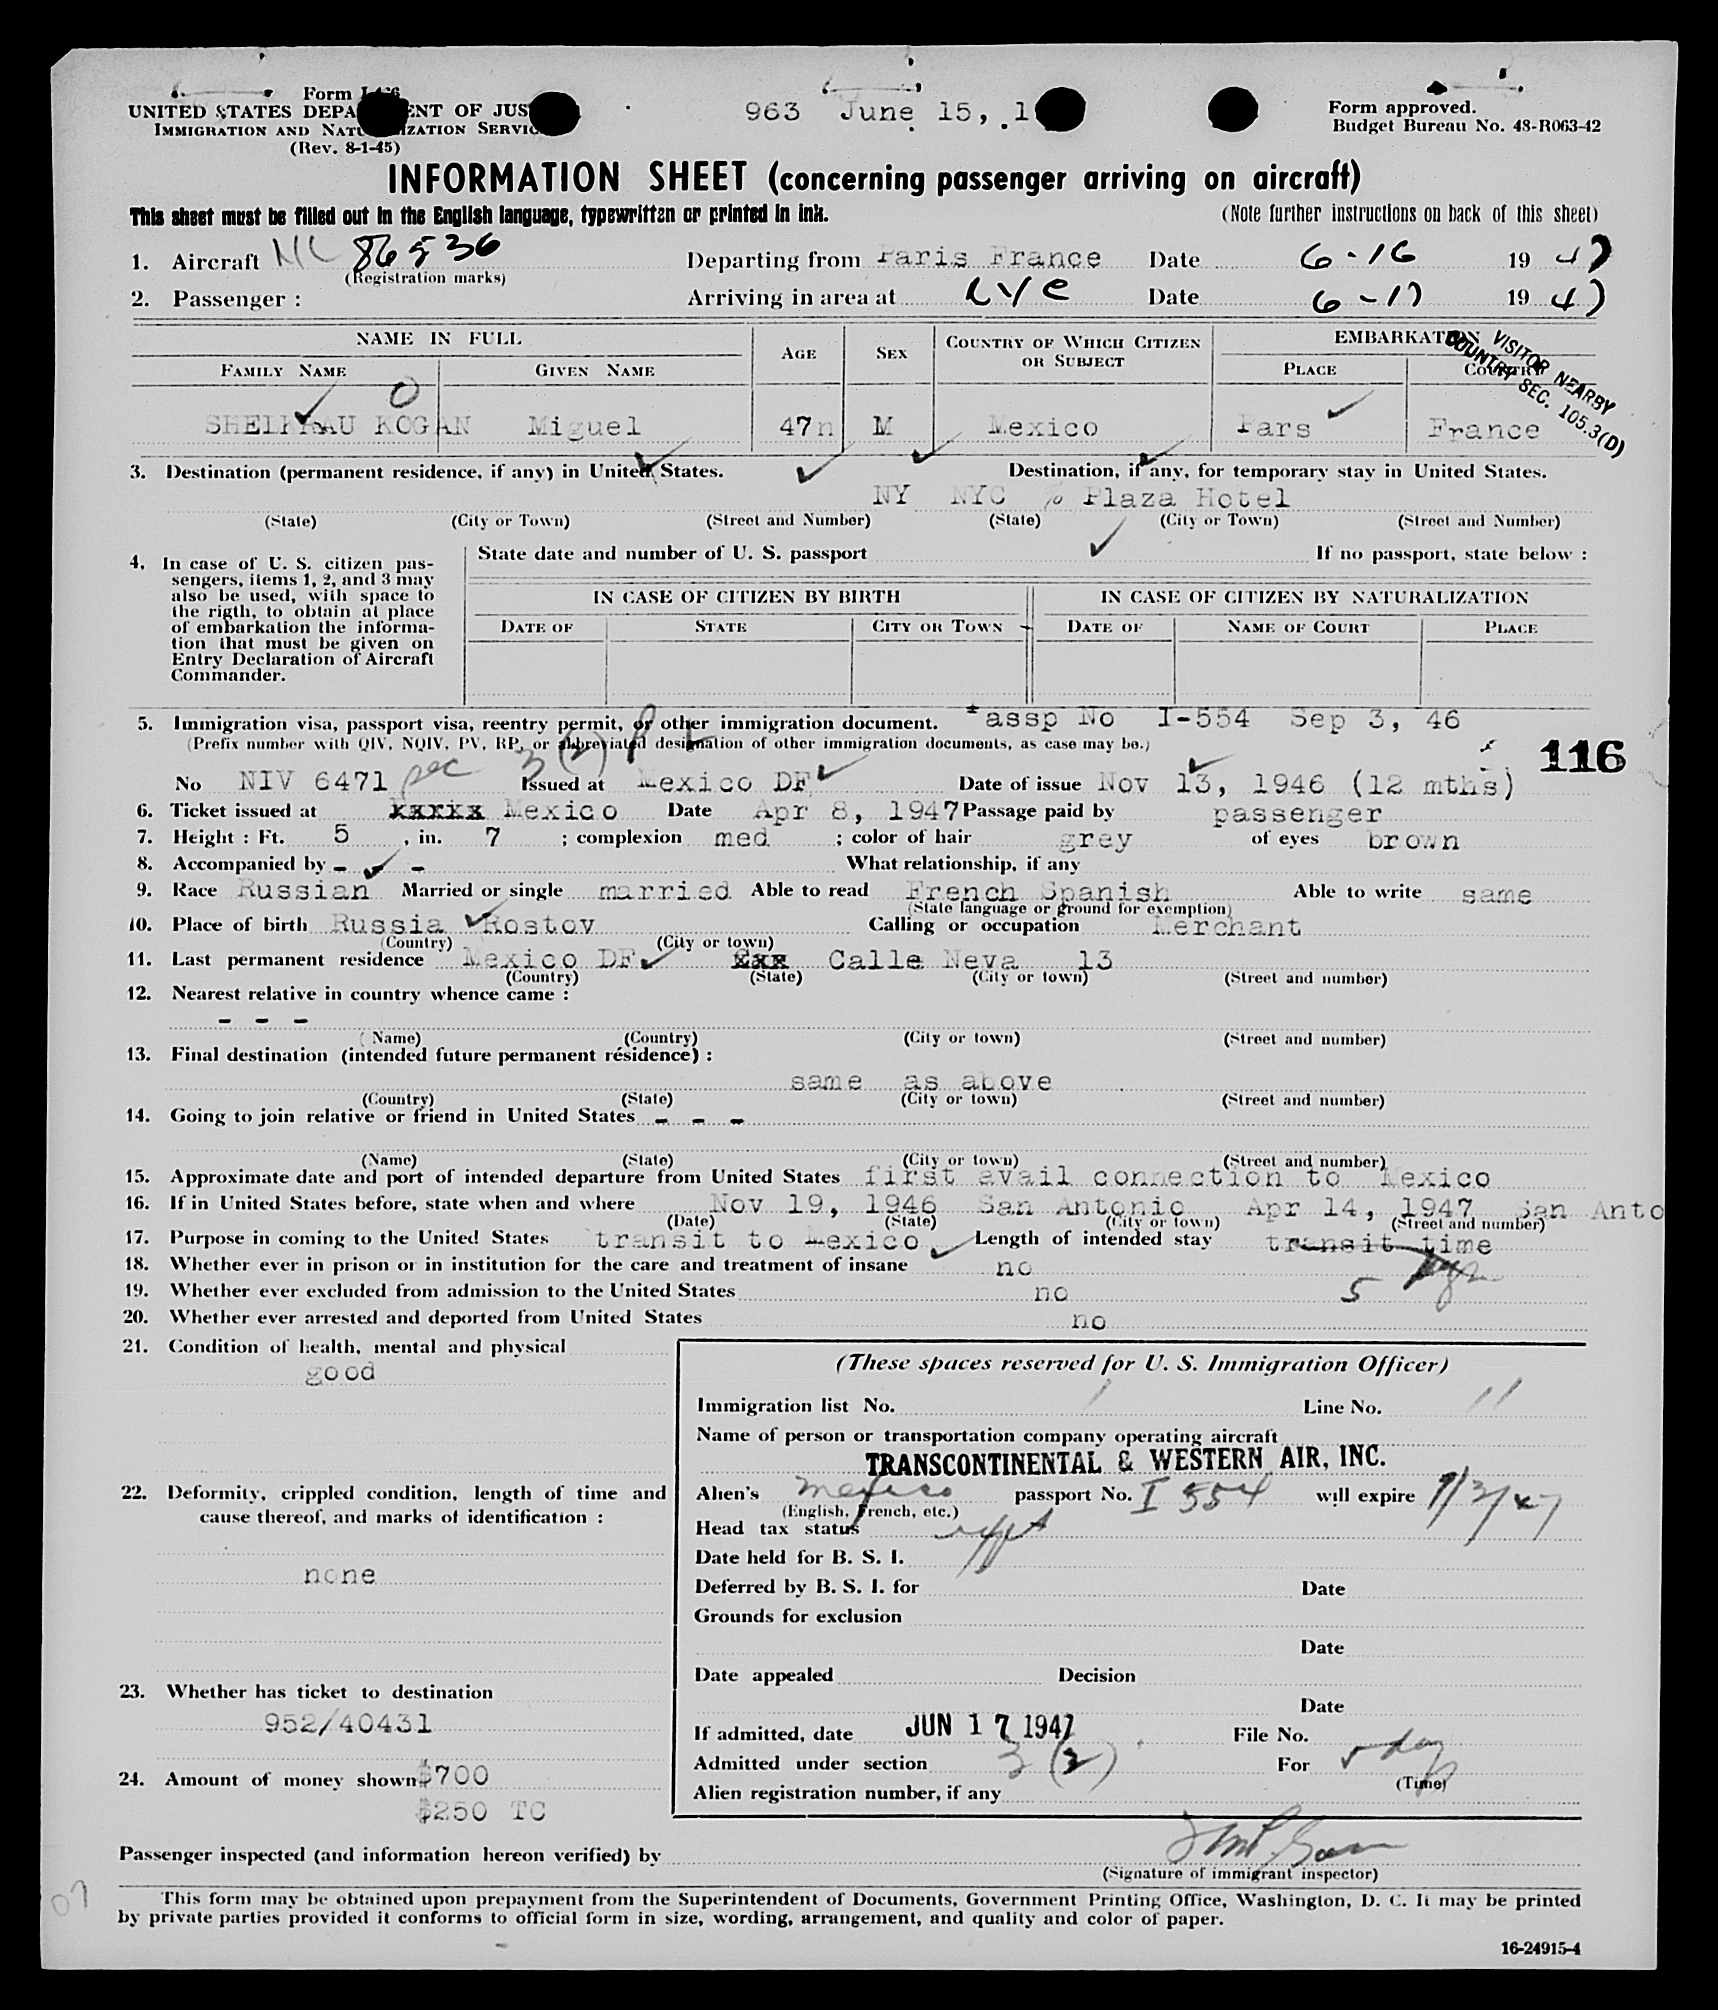 Form
UNITED STATES DEPA ENT OF JUS
963 June 15, 1
Form approved.
IMMIGRATION AND NATU IZATION SERVIC
Budget Bureau No. 43-R063-42
(Rev. 8-1-45)
INFORMATION SHEET (concerning passenger arriving on aircraft)
This sheet must be filled out in the English language, typewritten or printed in ink.
(Note further instructions on back of this sheet)
1. Aircraft NC 86536 Departing from Paris France Date 6-16 1947
(Registration marks)
2. Passenger : Arriving in area at NYC Date 6-17 1947
NAME IN FULL
AGE
SEX
COUNTRY OF WHICH CITIZEN OR SUBJECT
EMBARKATION
FAMILY NAME
GIVEN NAME
PLACE
COUNTRY
VISITOR NEARBY
COUNTRY SEC. 105.3(D)
KOGAN Miguel 47n M Mexico Pars France
3. Destination (permanent residence, if any) in United States. Destination, if any, for temporary stay in United States.
NY NYC % Plaza Hotel
(State) (City or Town) (Street and Number) (State) (City or Town) (Street and Number)
4. In case of U. S. citizen pas-
sengers, items 1, 2, and 3 may
also be used, with space to
the rigth, to obtain at place
of embarkation the informa-
tion that must be given on
Entry Declaration of Aircraft
Commander.
State date and number of U. S. passport If no passport, state below :
IN CASE OF CITIZEN BY BIRTH IN CASE OF CITIZEN BY NATURALIZATION
DATE OF STATE CITY OR TOWN DATE OF NAME OF COURT PLACE
5. Immigration visa, passport visa, reentry permit, or other immigration document. Passp No I-554 Sep 3, 46
(Prefix number with QIV, NQIV, PV, RP, or abbreviated designation of other immigration documents, as case may be.)
3(2)
116
No NIV 6471 Issued at Mexico DF Date of issue Nov 13, 1946 (12 mths)
6. Ticket issued at xxxxx Mexico Date Apr 8, 1947 Passage paid by passenger
7. Height : Ft. 5 , in. 7 ; complexion med ; color of hair grey of eyes brown
8. Accompanied by - - What relationship, if any
9. Race Russian Married or single married Able to read French Spanish Able to write same
(State language or ground for exemption)
10. Place of birth Russia Rostov Calling or occupation Merchant
(Country) (City or town)
11. Last permanent residence Mexico DF xxx Calle Neva 13
(Country) (State) (City or town) (Street and number)
12. Nearest relative in country whence came :
- - -
(Name) (Country) (City or town) (Street and number)
13. Final destination (intended future permanent résidence) :
same as above
(Country) (State) (City or town) (Street and number)
14. Going to join relative or friend in United States - - -
(Name) (State) (City or town) (Street and number)
15. Approximate date and port of intended departure from United States first avail connection to Mexico
16. If in United States before, state when and where Nov 19, 1946 San Antonio Apr 14, 1947 San Anto
(Date) (State) (City or town) (Street and number)
17. Purpose in coming to the United States transit to Mexico Length of intended stay transit time
18. Whether ever in prison or in institution for the care and treatment of insane no
19. Whether ever excluded from admission to the United States no 5
20. Whether ever arrested and deported from United States no
21. Condition of health, mental and physical
good
22. Deformity, crippled condition, length of time and
cause thereof, and marks of identification :
none
23. Whether has ticket to destination
952/40431
24. Amount of money shown $700
$250 TC
(These spaces reserved for U. S. Immigration Officer)
Immigration list No. 1 Line No. 11
Name of person or transportation company operating aircraft
TRANSCONTINENTAL & WESTERN AIR, INC.
Alien's Mexico passport No. I 554 will expire 9/3/47
(English, French, etc.)
Head tax status
Date held for B. S. I.
Deferred by B. S. I. for Date
Grounds for exclusion
Date
Date appealed Decision
Date
If admitted, date JUN 17 1947 File No.
Admitted under section 3 (2) For 5 days
(Time)
Alien registration number, if any
Passenger inspected (and information hereon verified) by
(Signature of immigrant inspector)
This form may be obtained upon prepayment from the Superintendent of Documents, Government Printing Office, Washington, D. C. It may be printed
by private parties provided it conforms to official form in size, wording, arrangement, and quality and color of paper.
16-24915-4